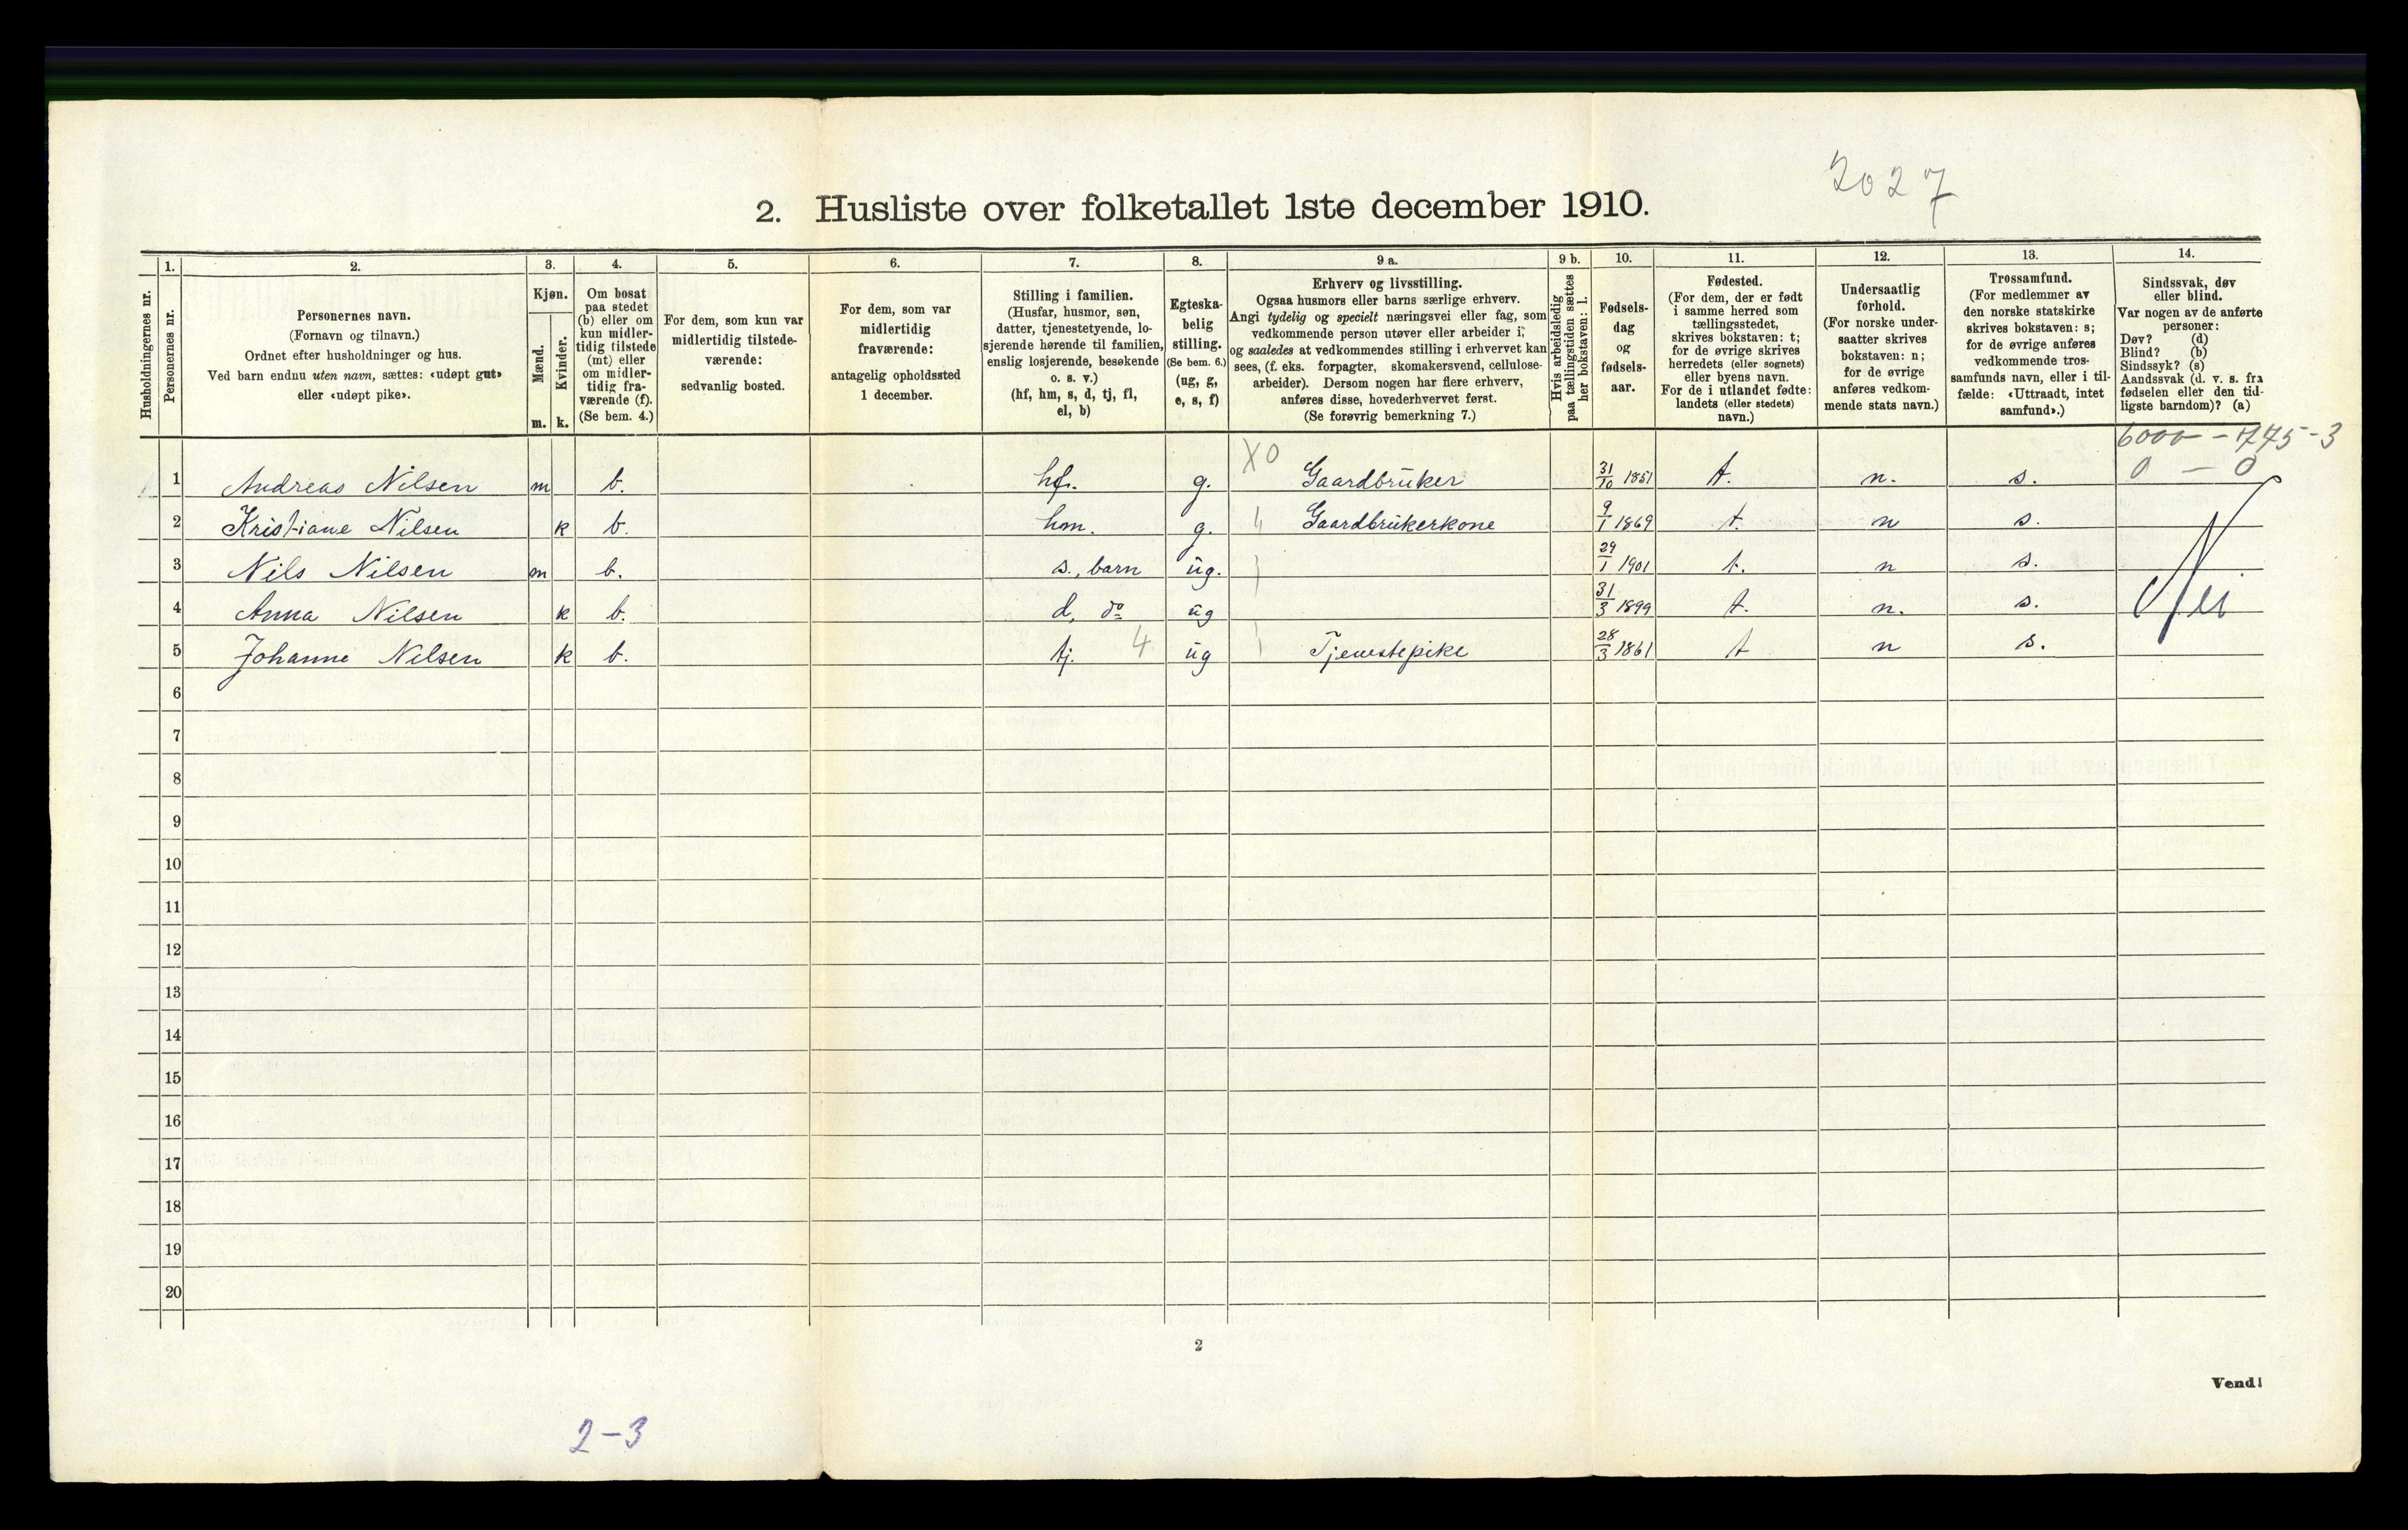 2027
2. Husliste over folketallet 1ste december 1910.
1. 2. 3. 4. 5. 6. 7. 8. 9 a. 9 b. 10. 11. 12. 13. 14.
Husholdningernes nr.
Personernes nr.
Personernes navn.
(Fornavn og tilnavn.)
Ordnet efter husholdninger og hus.
Ved barn endnu uten navn, sættes: «udøpt gut»
eller «udøpt pike».
Kjøn.
Mænd.
m.
Kvinder.
k.
Om bosat
paa stedet
(b) eller om
kun midler-
tidig tilstede
(mt) eller
om midler-
tidig fra-
værende (f).
(Se bem. 4.)
For dem, som kun var
midlertidig tilstede-
værende:
sedvanlig bosted.
For dem, som var
midlertidig
fraværende:
antagelig opholdssted
1 december.
Stilling i familien.
(Husfar, husmor, søn,
datter, tjenestetyende, lo-
sjerende hørende til familien,
enslig losjerende, besøkende
o. s. v.)
(hf, hm, s, d, tj, fl,
el, b)
Egteska-
belig
stilling.
(Se bem. 6.)
(ug, g,
e, s, f)
Erhverv og livsstilling.
Ogsaa husmors eller barns særlige erhverv.
Angi tydelig og specielt næringsvei eller fag, som
vedkommende person utøver eller arbeider i,
og saaledes at vedkommendes stilling i erhvervet kan
sees, (f. eks. forpagter, skomakersvend, cellulose-
arbeider). Dersom nogen har flere erhverv,
anføres disse, hovederhvervet først.
(Se forøvrig bemerkning 7.)
Hvis arbeidsledig
paa tællingstiden sættes
her bokstaven: l.
Fødsels-
dag
og
fødsels-
aar.
Fødested.
(For dem, der er født
i samme herred som
tællingsstedet,
skrives bokstaven: t;
for de øvrige skrives
herredets (eller sognets)
eller byens navn.
For de i utlandet fødte:
landets (eller stedets)
navn.)
Undersaatlig
forhold.
(For norske under-
saatter skrives
bokstaven: n;
for de øvrige
anføres vedkom-
mende stats navn.)
Trossamfund.
(For medlemmer av
den norske statskirke
skrives bokstaven: s;
for de øvrige anføres
vedkommende tros-
samfunds navn, eller i til-
fælde: «Uttraadt, intet
samfund».)
Sindssvak, døv
eller blind.
Var nogen av de anførte
personer:
Døv? (d)
Blind? (b)
Sindssyk? (s)
Aandssvak (d. v. s. fra
fødselen eller den tid-
ligste barndom)? (a)
6000 - 775-3
X0 0 - 0
1 Andreas Nilsen m b. hf. g. Gaardbruker 31/10 1851 t. n. s.
2 Kristiane Nilsen k b. hm. g. 4 Gaardbrukerkone 9/1 1869 t. n s.
3 Nils Nilsen m b. s., barn ug. 29/1 1901 t. n s.
4 Anna Nilsen k b. d, do ug 31/3 1899 t. n. s. Nei
5 Johanne Nilsen k b. tj. 4 ug Tjenestepike 28/3 1861 t n s.
6
7
8
9
10
11
12
13
14
15
16
17
18
19
20
2
Vend!
2-3